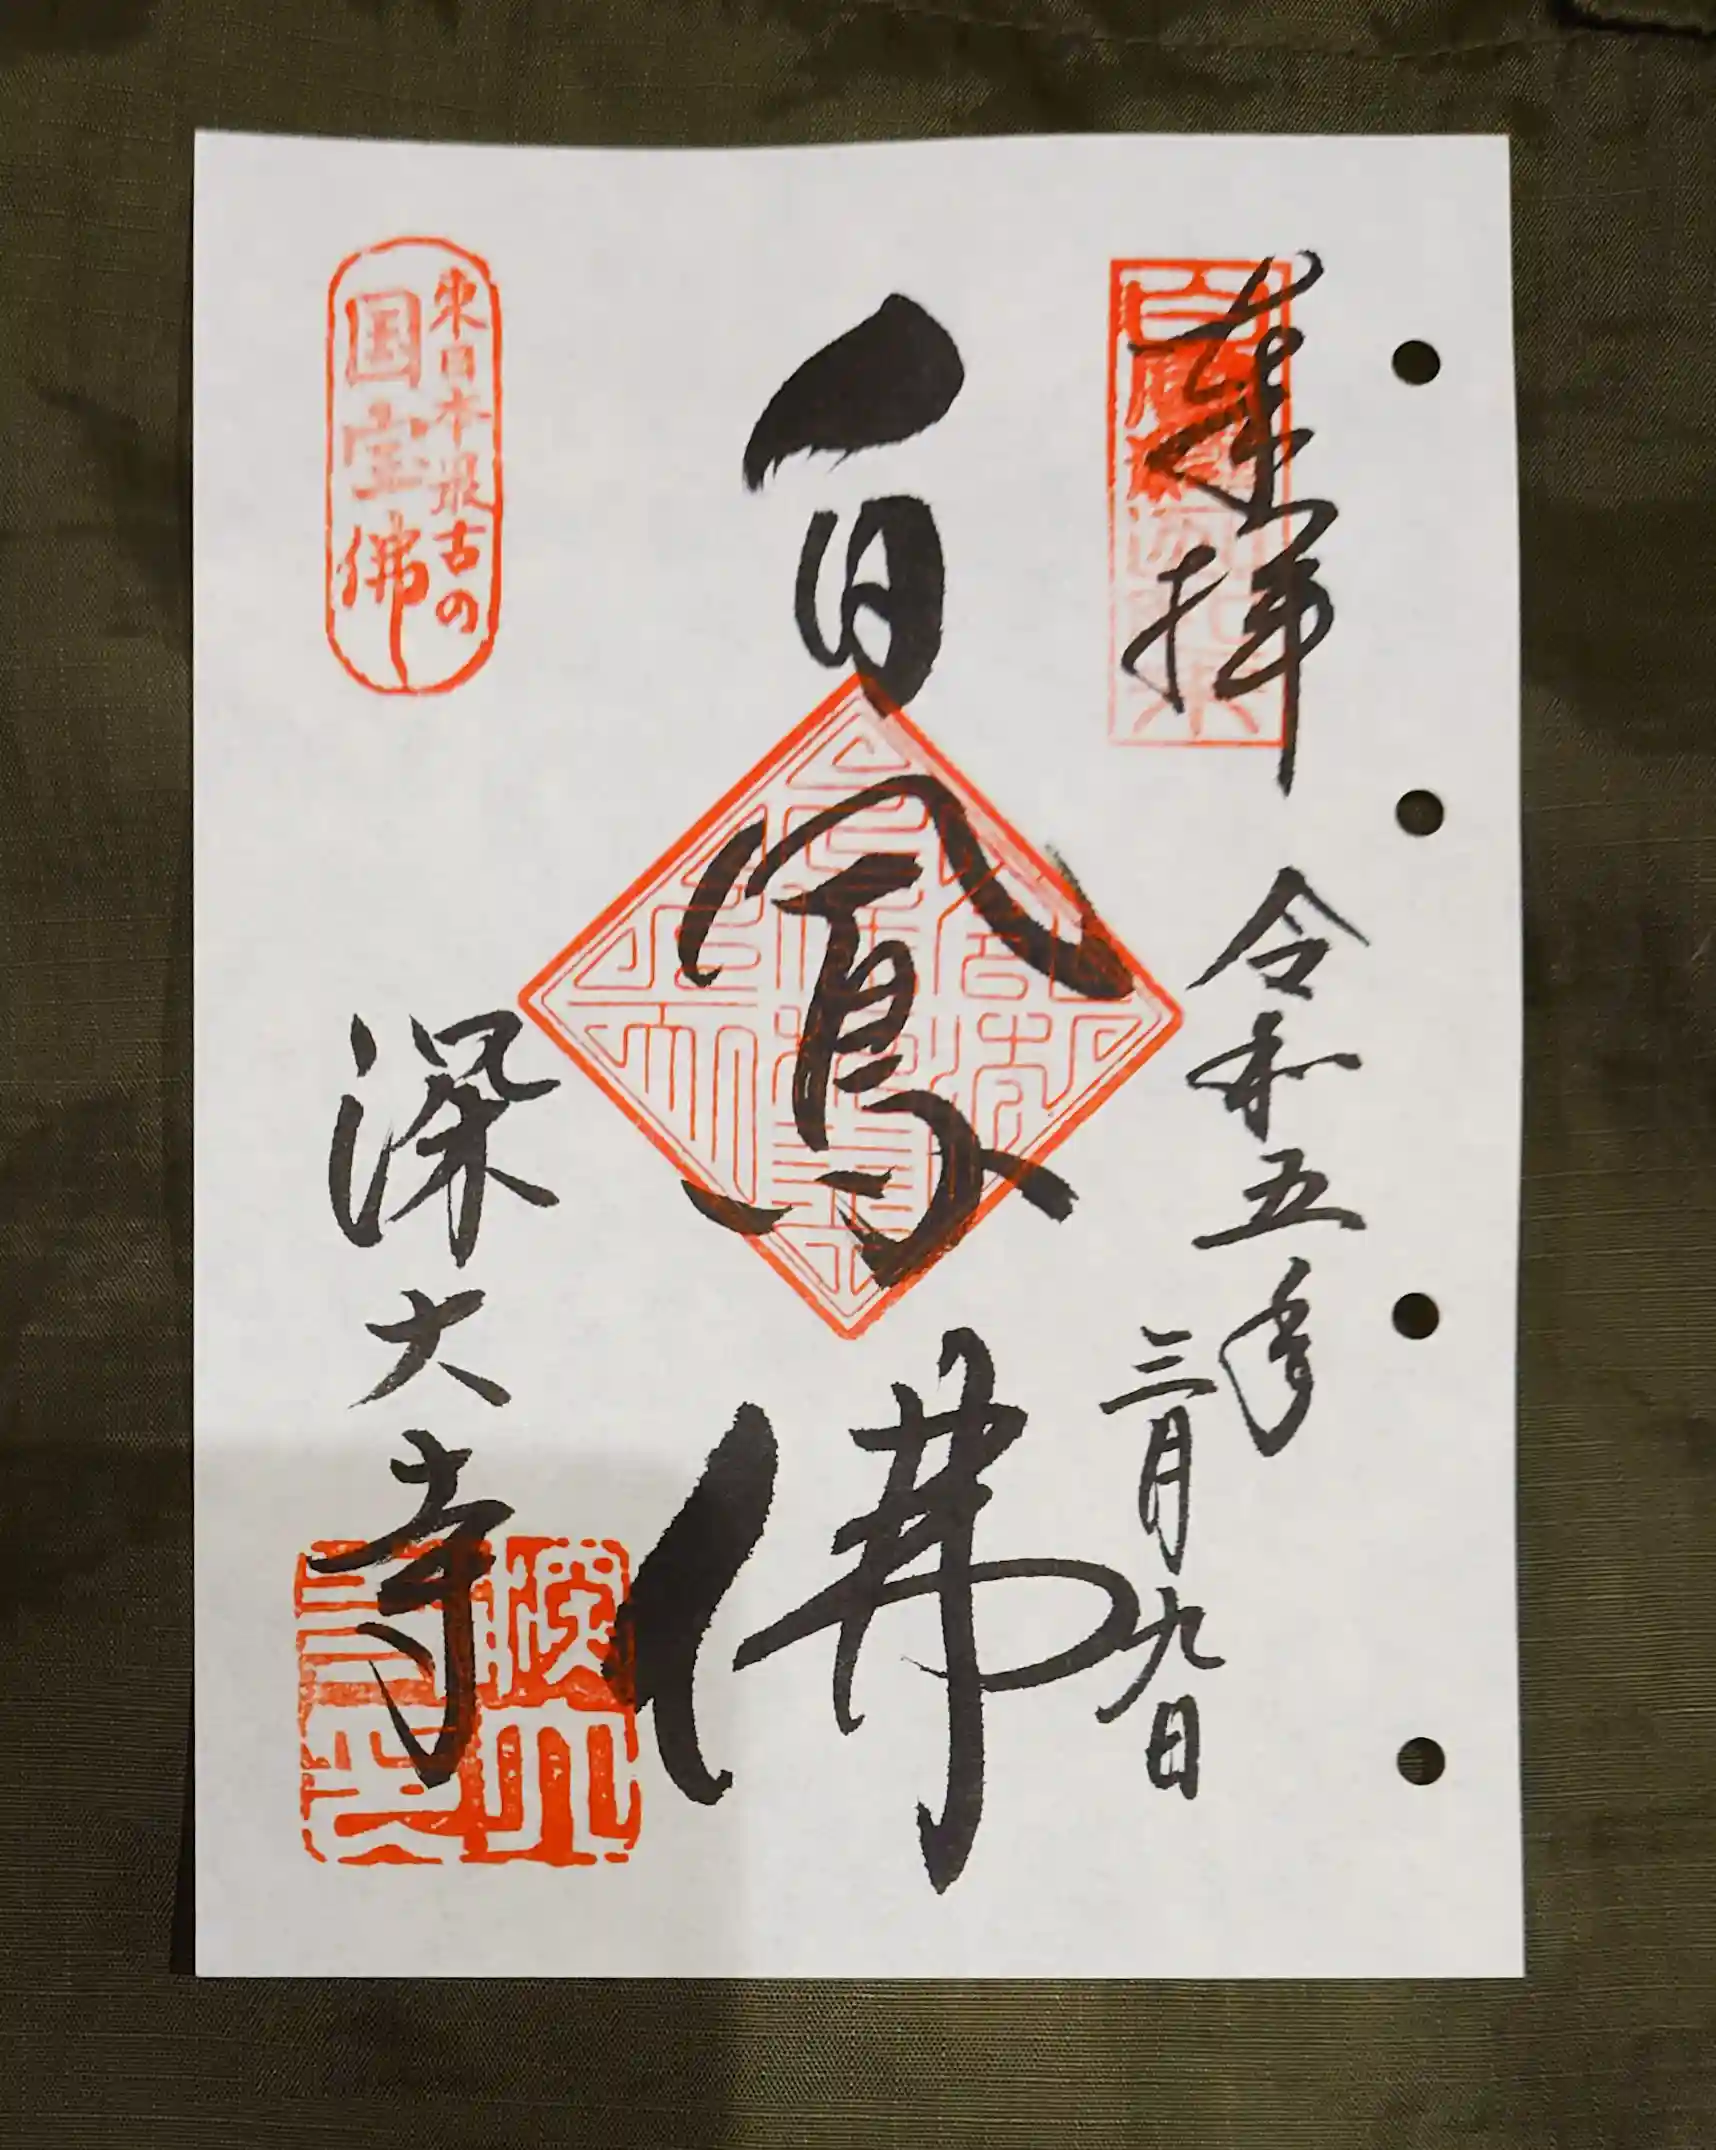 奉拝
令和五年
三月九日
白鳳佛
東日本最古の
国宝佛
深大寺